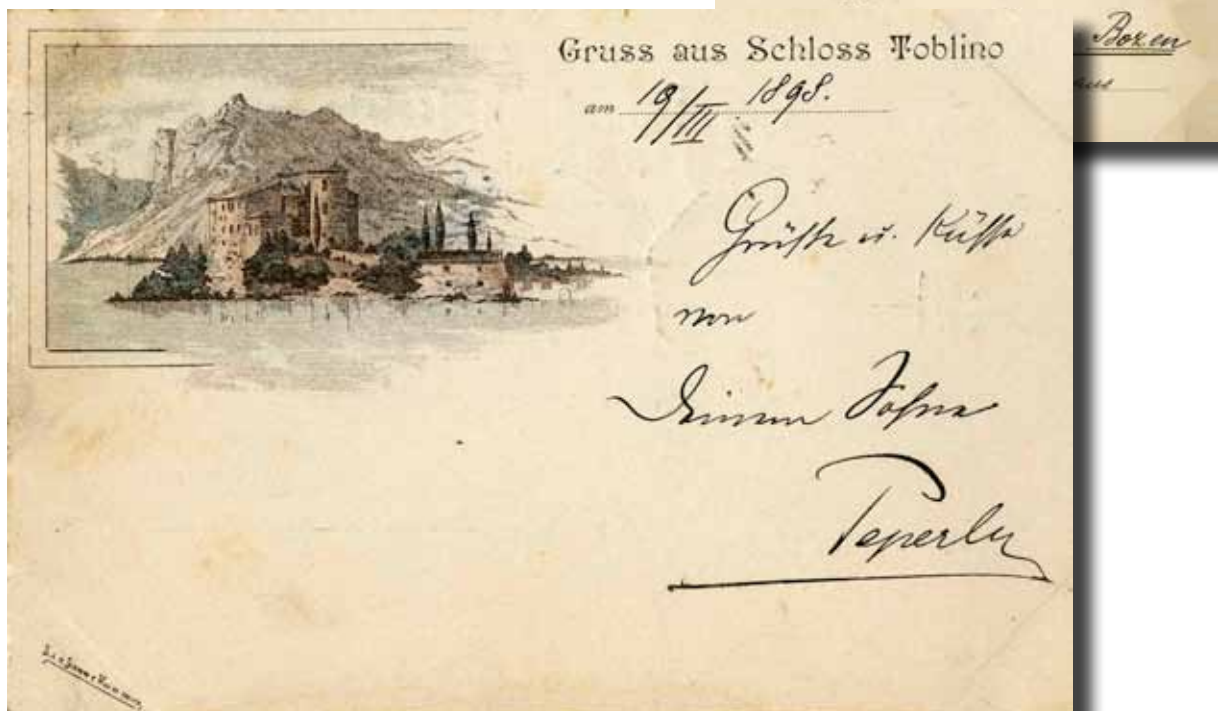 Gruss aus Schloss Toblino
am 19/III 1898.
Grüße u. Küsse
von
Deinem Sohne
Peperly
Bozen